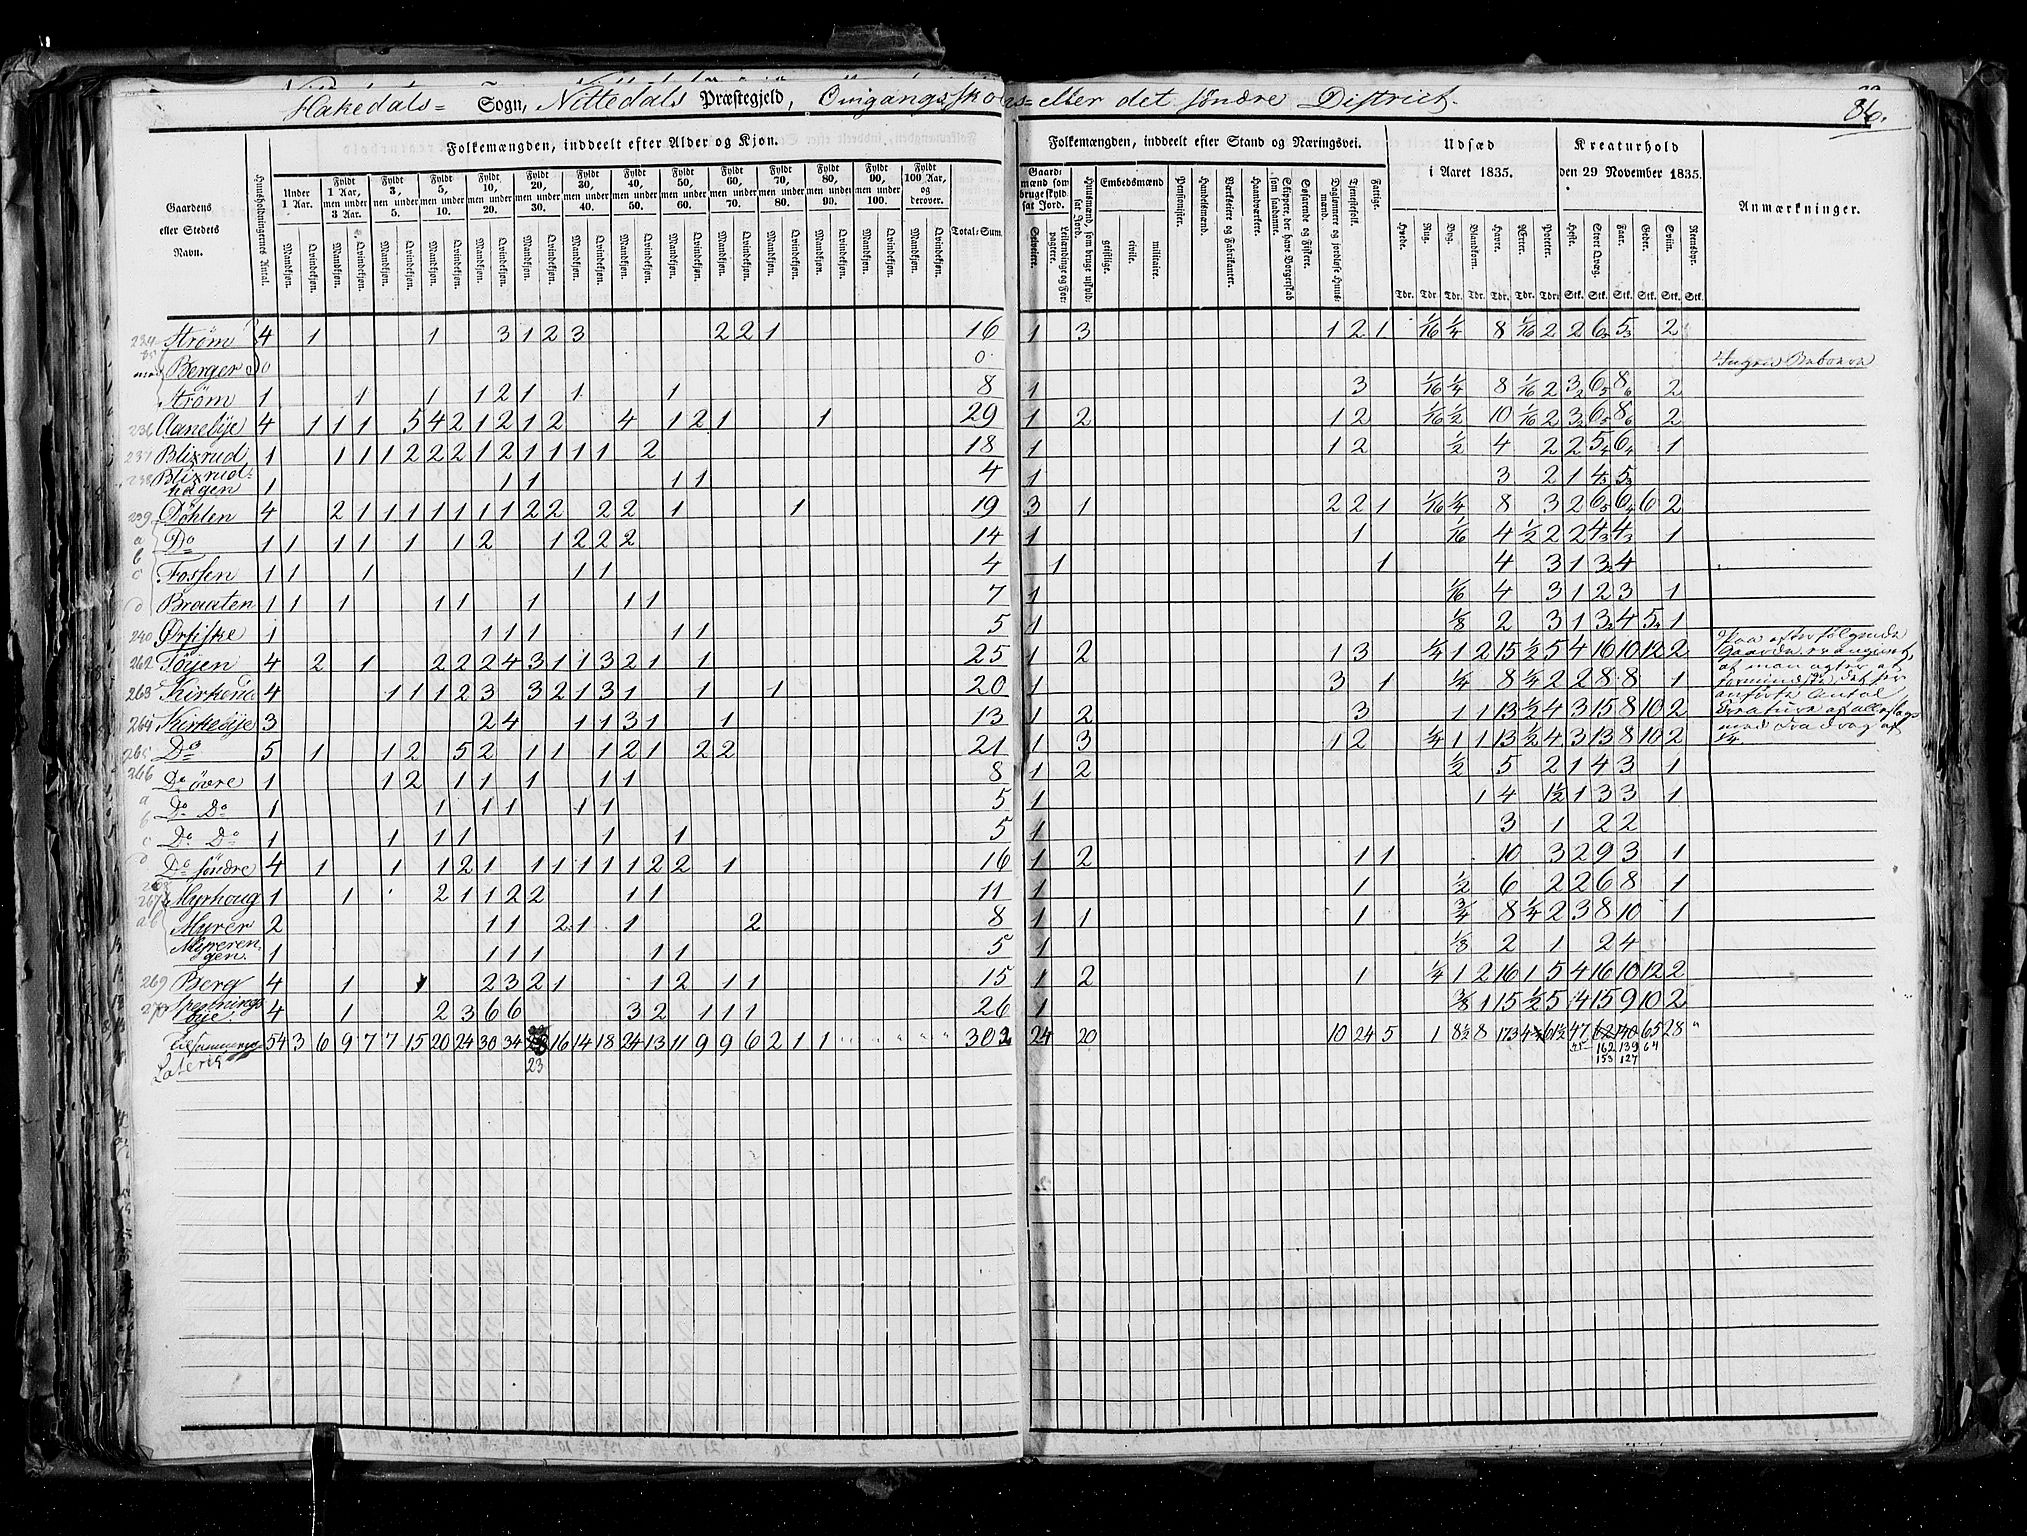 Hakedals= Sogn, Nittedals Præstegjeld, Omgangsskoles= eller det søndre District.
86.
Folkemængden, inddeelt efter Alder og Kjøn.
Folkemængden, inddeelt efter Stand og Næringsvei.
Udsæd i Aaret 1835.
Kreaturhold den 29 November 1835.
Anmærkninger.
Gaardens eller Stedets Navn.
Huusholdningernes Antal.
Under 1 Aar.
Fyldt 1 Aar, men under 3 Aar.
Fyldt 3, men under 5.
Fyldt 5, men under 10.
Fyldt 10, men under 20.
Fyldt 20, men under 30.
Fyldt 30, men under 40.
Fyldt 40, men under 50.
Fyldt 50, men under 60.
Fyldt 60, men under 70.
Fyldt 70, men under 80.
Fyldt 80, men under 90.
Fyldt 90, men under 100.
Fyldt 100 Aar, og derover.
Mandkjøn. Qvindekjøn.
Total-Sum.
Gaardmænd som bruge skyldsat Jord.
Selveiere.
Leilændinge og Forpagtere.
Huusmænd, som bruge uskyldsat Jord.
Embedsmænd
geistlige. civile. militaire.
Pensionister.
Handelsmænd.
Værkeiere og Fabrikanter.
Haandværkere.
Skippere, der have Borgerskab som saadanne.
Søfarende og Fiskere.
Daglønnere og jordløse Huusmænd.
Tjenestefolk.
Fattige.
Hvede. Rug. Byg. Blandkorn. Havre. Erter. Poteter.
Heste. Stort Qvæg. Faar. Geder. Sviin. Rensdyr.
Tdr. Tdr. Tdr. Tdr. Tdr. Tdr. Tdr. Stk. Stk. Stk. Stk. Stk. Stk.
234 Strøm 4 1 1 3 1 2 3 2 2 1 16 1 3 1 2 1 1/16 1/4 8 1/16 2 2 6 5 2
Berger 0 0
Strøm 1 1 1 1 2 1 1 1 8 1 3 1/16 1/4 8 1/16 2 3 6 8 2
236 Aanebÿe 4 1 1 1 5 4 2 1 2 1 2 4 1 2 1 1 29 1 2 1 2 1/16 1/2 10 1/16 2 3 6 8 2
237 Blixrud 1 1 1 1 2 2 2 1 2 1 1 1 1 2 18 1 1 2 1/2 4 2 2 5 6 1
238 Blixrudhagen 1 1 1 1 1 4 1 3 2 1 4 5
239 Døhlen 4 2 1 1 1 1 1 1 1 2 2 2 2 1 1 19 3 1 2 2 1 1/16 1/4 8 3 2 6 6 6 2
Do 1 1 1 1 1 1 2 1 2 2 2 14 1 1 1/16 4 1/2 2 2 4 4 1
Fossen 1 1 1 1 1 4 1 1 4 3 1 3 4
Braaten 1 1 1 1 1 1 1 1 7 1 1/16 4 3 1 2 3 1
240 Ørfiske 1 1 1 1 1 1 5 1 1/8 2 3 1 3 4 5 1
262 Tøÿen 4 2 1 2 2 2 4 3 1 1 3 2 1 1 25 1 2 1 3 1/4 1 2 15 1/2 5 4 16 10 12 2
263 4 1 1 1 2 3 3 2 1 3 1 1 1 20 1 3 1 1/4 8 1/4 2 2 8 8 1
264 Kirkebÿe 3 2 4 1 1 3 1 1 13 1 2 3 1 1 13 1/2 4 3 15 8 10 2
265 Do 5 1 1 2 5 2 1 1 1 2 1 2 2 21 1 3 1 2 1/4 1 1 13 1/2 4 3 13 8 10 2
266 Do øvre 1 1 2 1 1 1 1 1 8 1 2 1/2 5 2 1 4 3 1
Do Do 1 1 1 1 1 1 5 1 1 4 1 1/2 1 3 3 1
Do Do 1 1 1 1 1 1 5 1 3 1 2 2
Do søndre 4 1 1 1 2 1 1 1 1 1 1 2 2 1 16 1 2 1 1 10 3 2 9 3 1
267 Myrhaug 1 1 2 1 1 2 2 1 1 11 1 1 1/2 6 2 2 6 8 1
Myrer 2 1 1 2 1 1 2 8 1 1 1 3/4 8 1/4 2 3 8 10 1
Myrerengen. 1 1 1 1 1 1 5 1 1/8 2 1 2 4
269 Berg 4 1 1 2 3 2 1 1 2 1 1 15 1 2 1 1/4 1 2 16 1 5 4 16 10 12 2
270 4 1 2 3 6 6 3 2 1 1 1 26 1 3/8 1 15 1/2 5 4 15 9 10 2
54 3 6 9 7 7 15 20 24 30 34 16 14 18 24 13 11 9 9 6 2 1 1 302 24 20 10 24 5 1 8 1/2 8 173 47 65 28
23
45 162 139 64
153 127
Lateris
Paa efterfølgende
Gaarde
af man agter at
det her
anførte Antal
Kreature af alle slags
med Fradrag af
1/4.